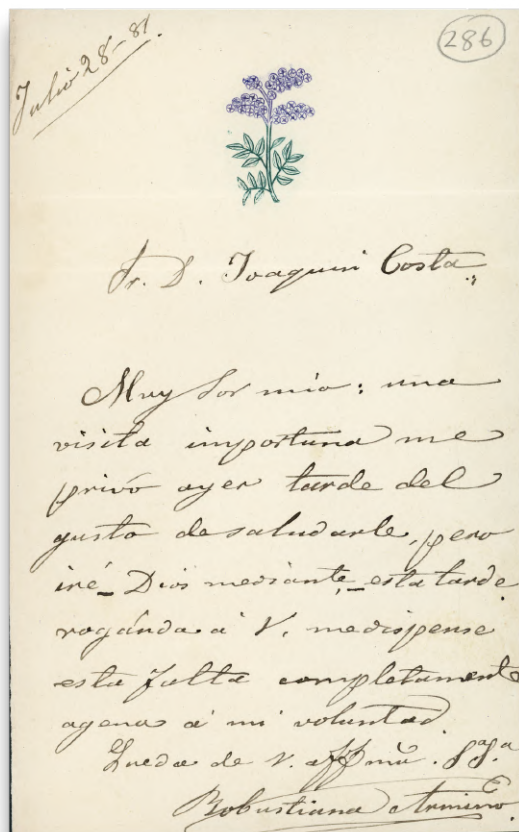 Julio 28-81.
286
Sr. D. Joaquin Costa
Muy Sor mio: una
visita importuna me
privó ayer tarde del
gusto de saludarle, pero
iré_ Dios mediante,_ esta tarde
rogándo a V. me dispense
esta falta completament
agena á mi voluntad.
Queda de V. affma. S.a S.a
Robustiana Armiño